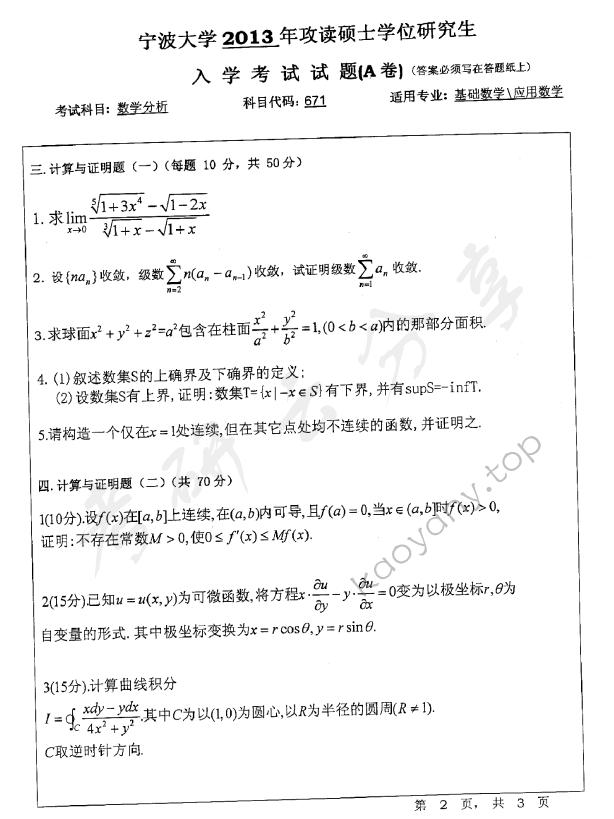 宁波大学 2013 年攻读硕士学位研究生
入 学 考 试 试 题(A 卷) (答案必须写在答题纸上)
考试科目: 数学分析 科目代码: 671 适用专业: 基础数学\应用数学
三.计算与证明题（一）(每题 10 分，共 50 分)
1. 求 lim_{x→0} (⁵√(1+3x⁴) − √(1−2x)) / (³√(1+x) − √(1+x))
2. 设{naₙ}收敛，级数∑_{n=2}^{∞} n(aₙ − aₙ₋₁)收敛，试证明级数∑_{n=1}^{∞} aₙ 收敛.
3.求球面x² + y² + z²=a²包含在柱面x²/a² + y²/b² = 1,(0 < b < a)内的那部分面积.
4. (1)叙述数集S的上确界及下确界的定义;
(2)设数集S有上界,证明:数集T={x | −x∈S}有下界,并有supS=-infT.
5.请构造一个仅在x = 1处连续,但在其它点处均不连续的函数,并证明之.
四.计算与证明题（二）(共 70 分)
1(10分).设f(x)在[a,b]上连续,在(a,b)内可导,且f(a) = 0,当x∈(a,b]时f(x) > 0,
证明:不存在常数M > 0,使0 ≤ f′(x) ≤ Mf(x).
2(15分)已知u = u(x,y)为可微函数,将方程x·∂u/∂y − y·∂u/∂x = 0变为以极坐标r,θ为
自变量的形式.其中极坐标变换为x = r cosθ, y = r sinθ.
3(15分).计算曲线积分
I = ∮_C (xdy − ydx)/(4x² + y²).其中C为以(1,0)为圆心,以R为半径的圆周(R ≠ 1).
C取逆时针方向.
第 2 页，共 3 页
考研云分享
kaoyany.top